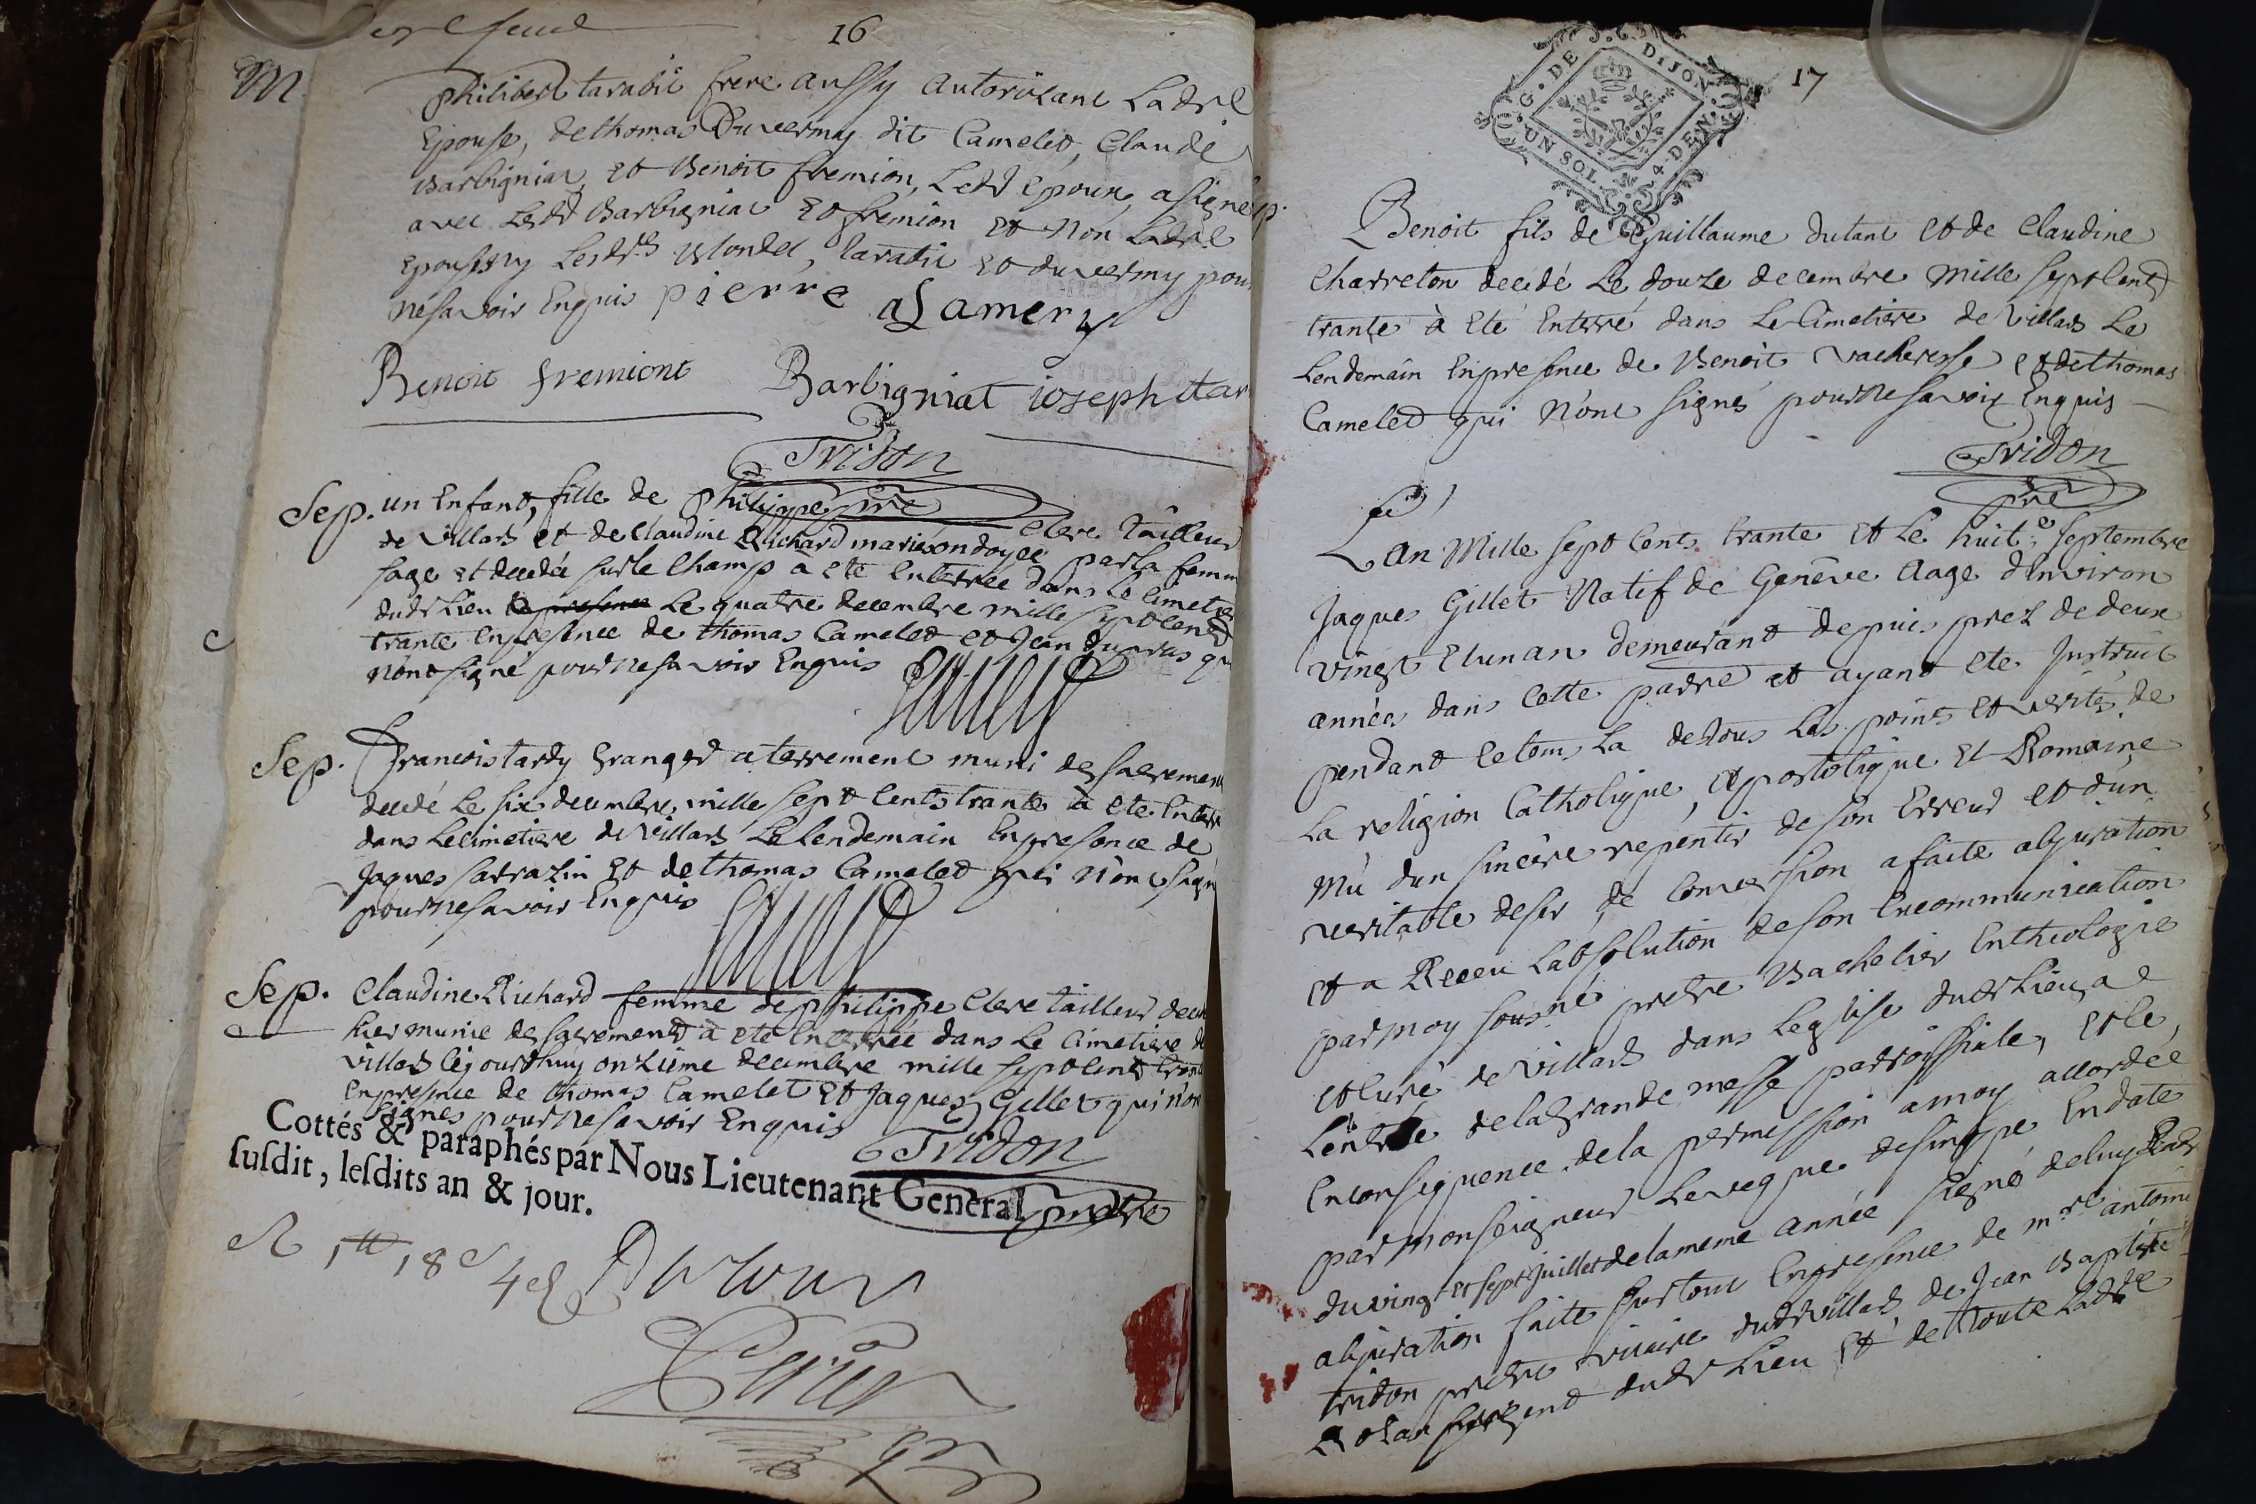 16
M
philibert tarabit frere aussy autorisant Ladte
Epouse, dethomas Duvernay dit Camelet, Claude
Barbigniat, et Benoit fremion, Ledt Epoux, a signé
avec Lesdt Barbigniat et fremion et Non Ladte
Epouse ny Lesdts Blondel, tarabit et duvernay pour
Nesavoir Enquis pierre
aLamery
Benoit fremiont Barbigniat ioseph tar
Tridon
pre
Sep. un Enfant, fille de Philippe Clere tailleur
de Villars et de Claudine Richard mariés ondoyée par la femme
sage et decedée sur le Champ a eté Enterrée dans Le Cimetiere
dudt Lieu Le quatre decembre mille sept cents
trante Enpresence de thomas Camelet et Jean dupras qui
N'ont signé pour Nesavoir Enquis
Sep. francois tardy granger a terrement muni des sacrements
decedé Le six decembre mille sept Cents trante à eté Enterré
dans Le Cimetiere de Villars Le Lendemain Enpresence de
Jaques sarrazin et de thomas Camelet qui N'ont signé
pour Nesavoir Enquis
Sep. Claudine Richard femme de philippe Clere tailleur
hier munie des sacrements à eté Enterrée dans Le Cimetiere de
Villars Cejourdhuy onzieme decembre mille sept cents trante
Enpresence de thomas Camelet et Jaques Gillet qui N'ont
signés pour Nesavoir Enquis
Tridon
pretre
Cottés & paraphés par Nous Lieutenant General
susdit, lesdits an & jour.
17
G. DE DIJON
UN SOL 4 DEN.
Sep.
Benoit fils de Guillaume dutant et de Claudine
Charreton decedé Le douze decembre mille sept Cents
trante à eté Enterré dans Le Cimetiere de Villars Le
Lendemain Enpresence de Benoit vacheresse et de thomas
Camelet qui N'ont signés pour Nesavoir Enquis
Tridon
pre
Lan Mille sept Cents trante et Le huit.e septembre
Jaques Gillet Natif de Genêve aage d'environ
vingt et un an demeurant depuis prez de deux
années dans Cette parre et ayant eté Instruit
pendant Cetems La detous Les points et verités de
La religion Catholique, apostolique et Romaine
Mù dun sincère repentir de son Erreur et dun
veritable desir de Conversion a faite abjuration
et a Receu Labsolution de son Excommunication
par moy sousné pretre Bachelier Entheologie
et Curé de Villars dans Leglise dudt Lieu a
Lentrée de la Grande messe parroissiale, et Ce,
Enconsequence de la permission a moy accordée
par monseigneur Leveque de sinope En date
du vingt et sept Juillet de la meme année signé de luy
abjuration faite surtout Enpresence de mre antoine
tridon pretre vicaire dudt Villars de Jean Baptiste
sergent dudt Lieu et de toute Ladte